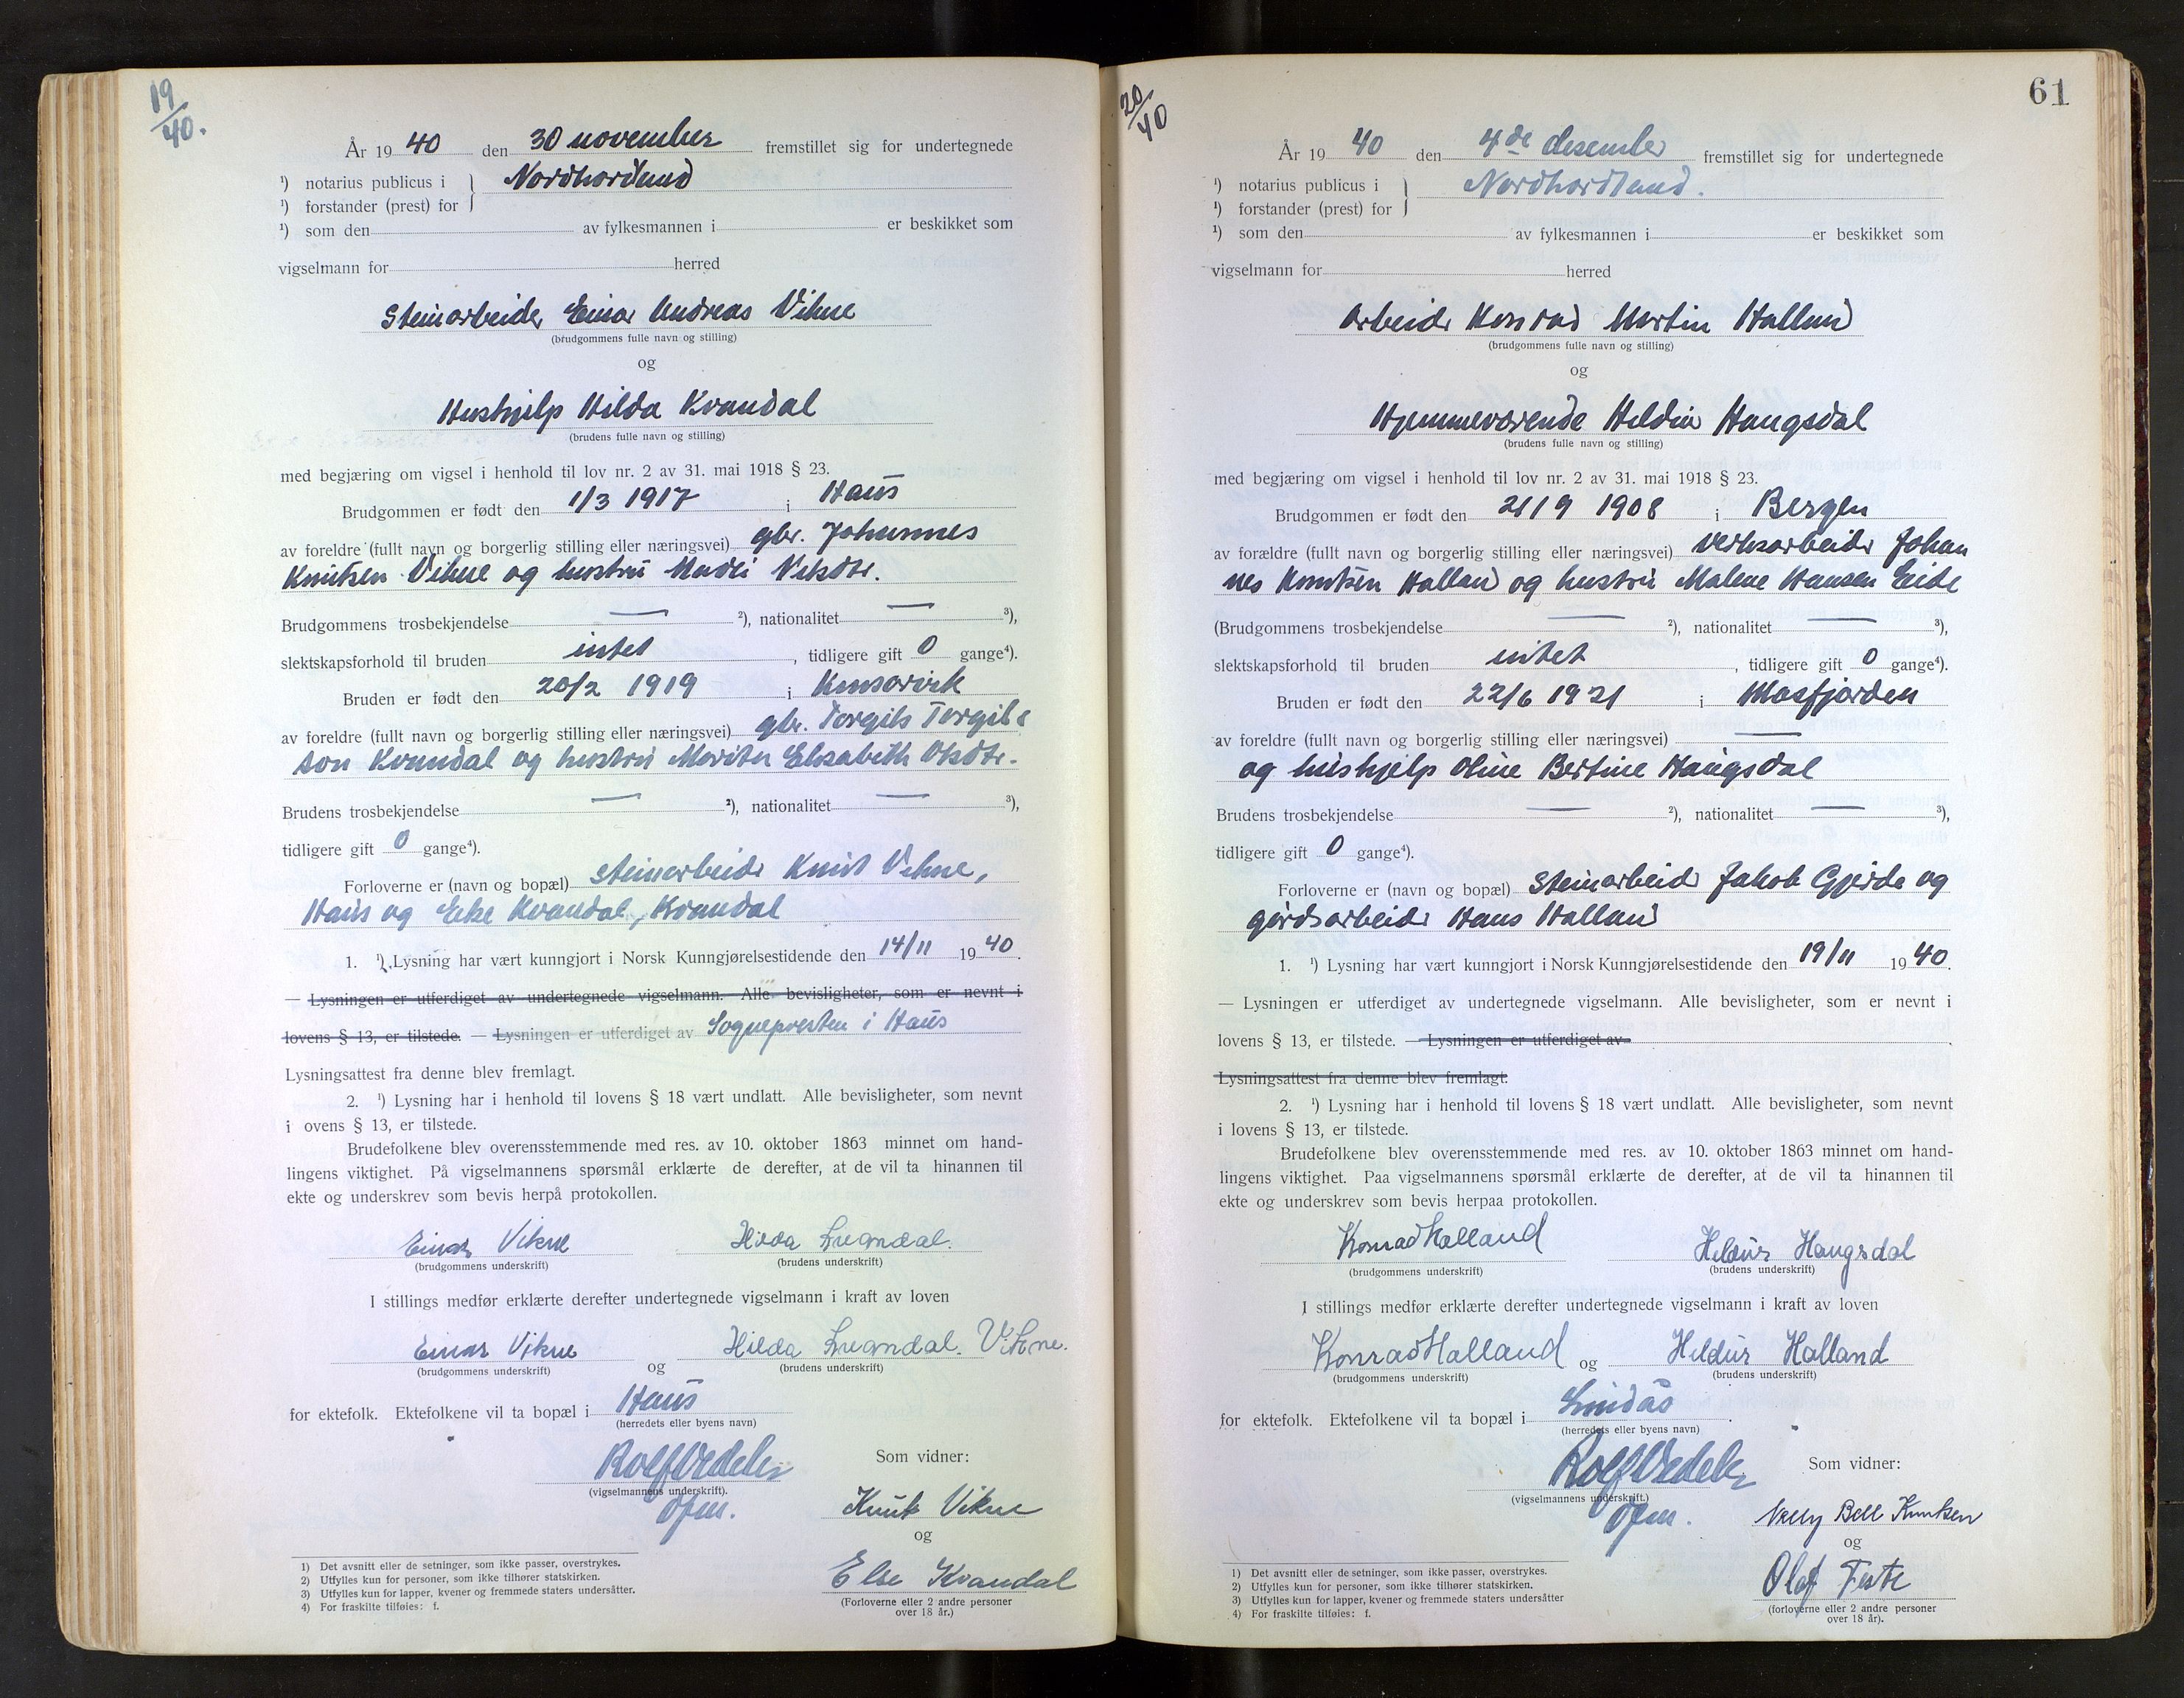 19/40.
År 19 40 den 30 november fremstillet sig for undertegnede
¹) notarius publicus i } Nordhordland
¹) forstander (prest) for
¹) som den av fylkesmannen i er beskikket som
vigselmann for herred
Steinarbeider Einar Andreas Vikne
(brudgommens fulle navn og stilling)
og
Hushjelp Hilda Kvandal
(brudens fulle navn og stilling)
med begjæring om vigsel i henhold til lov nr. 2 av 31. mai 1918 § 23.
Brudgommen er født den 1/3 1917 i Haus
av foreldre (fullt navn og borgerlig stilling eller næringsvei) gbr. Johannes
Knutsen Vikne og hustru Madli Nilsdtr.
Brudgommens trosbekjendelse — ²), nationalitet — ³),
slektskapsforhold til bruden intet, tidligere gift 0 gange⁴).
Bruden er født den 20/2 1919 i Kinsarvik
av foreldre (fullt navn og borgerlig stilling eller næringsvei) gbr. Torgils Torgils
son Kvandal og hustru Marita Elisabeth Olsdtr.
Brudens trosbekjendelse — ²), nationalitet — ³),
tidligere gift 0 gange⁴).
Forloverne er (navn og bopæl) steinarbeider Knut Vikne,
Haus og Else Kvandal, Kvandal
1. ¹) Lysning har vært kunngjort i Norsk Kunngjørelsestidende den 14/11 19 40.
— Lysningen er utferdiget av undertegnede vigselmann. Alle bevisligheter, som er nevnt i
lovens § 13, er tilstede. — Lysningen er utferdiget av Sognepresten i Haus
Lysningsattest fra denne blev fremlagt.
2. ¹) Lysning har i henhold til lovens § 18 vært undlatt. Alle bevisligheter, som nevnt
i ovens § 13, er tilstede.
Brudefolkene blev overensstemmende med res. av 10. oktober 1863 minnet om hand-
lingens viktighet. På vigselmannens spørsmål erklærte de derefter, at de vil ta hinannen til
ekte og underskrev som bevis herpå protokollen.
Einar Vikne Hilda Kvandal.
(brudgommens underskrift) (brudens underskrift)
I stillings medfør erklærte derefter undertegnede vigselmann i kraft av loven
Einar Vikne og Hilda Kvandal. Vikne.
(brudgommens underskrift) (brudens underskrift)
for ektefolk. Ektefolkene vil ta bopæl i Haus
(herredets eller byens navn)
Rolf Vedeler Som vidner:
(vigselmannens underskrift).
dfm. Knut Vikne
og
Else Kvandal
(Forloverne eller 2 andre personer
over 18 år.)
1) Det avsnitt eller de setninger, som ikke passer, overstrykes.
2) Utfylles kun for personer, som ikke tilhører statskirken.
3) Utfylles kun for lapper, kvener og fremmede staters undersåtter.
4) For fraskilte tilføies: f.
20/40
61
År 19 40 den 4de desember fremstillet sig for undertegnede
¹) notarius publicus i } Nordhordland.
¹) forstander (prest) for
¹) som den av fylkesmannen i er beskikket som
vigselmann for herred
Arbeider Konrad Martin Halland
(brudgommens fulle navn og stilling)
og
Hjemmeværende Hildur Haugsdal
(brudens fulle navn og stilling)
med begjæring om vigsel i henhold til lov nr. 2 av 31. mai 1918 § 23.
Brudgommen er født den 21/9 1908 i Bergen
av forældre (fullt navn og borgerlig stilling eller næringsvei) verksarbeider Johan
nes Knutsen Halland og hustru Malene Hansen Eide
(Brudgommens trosbekjendelse — ²), nationalitet — ³),
slektskapsforhold til bruden intet, tidligere gift 0 gange⁴).
Bruden er født den 22/6 1921 i Masfjorden
av foreldre (fullt navn og borgerlig stilling eller næringsvei) —
og hushjelp Oline Bertine Haugsdal
Brudens trosbekjendelse — ²), nationalitet — ³),
tidligere gift 0 gange⁴).
Forloverne er (navn og bopæl) Steinarbeider Jakob Gjerde og
gårdsarbeider Hans Halland
1. ¹) Lysning har vært kunngjort i Norsk Kunngjørelsestidende den 19/11 19 40.
— Lysningen er utferdiget av undertegnede vigselmann. Alle bevisligheter, som er nevnt i
lovens § 13, er tilstede. — Lysningen er utferdiget av
Lysningsattest fra denne blev fremlagt.
2. ¹) Lysning har i henhold til lovens § 18 vært undlatt. Alle bevisligheter, som nevnt
i lovens § 13, er tilstede.
Brudefolkene blev overensstemmende med res. av 10. oktober 1863 minnet om hand-
lingens viktighet. Paa vigselmannens spørsmål erklærte de derefter, at de vil ta hinannen til
ekte og underskrev som bevis herpaa protokollen.
Konrad Halland Hildur Haugsdal
(brudgommens underskrift) (brudens underskrift)
I stillings medfør erklærte derefter undertegnede vigselmann i kraft av loven
Konrad Halland og Hildur Halland
(brudgommens underskrift) (brudens underskrift)
for ektefolk. Ektefolkene vil ta bopæl i Lindås.
(herredets eller byens navn)
Rolf Vedeler Som vidner:
(vigselmannens underskrift.)
dfm. Nelly Bell Knutsen
og
Olaf Feste
(forloverne eller 2 andre personer
over 18 år).
1) Det avsnitt eller de setninger, som ikke passer, overstrykes.
2) Utfylles kun for personer, som ikke tilhører statskirken.
3) Utfylles kun for lapper, kvener og fremmede staters undersåtter
4) For fraskilte tilføies: f.